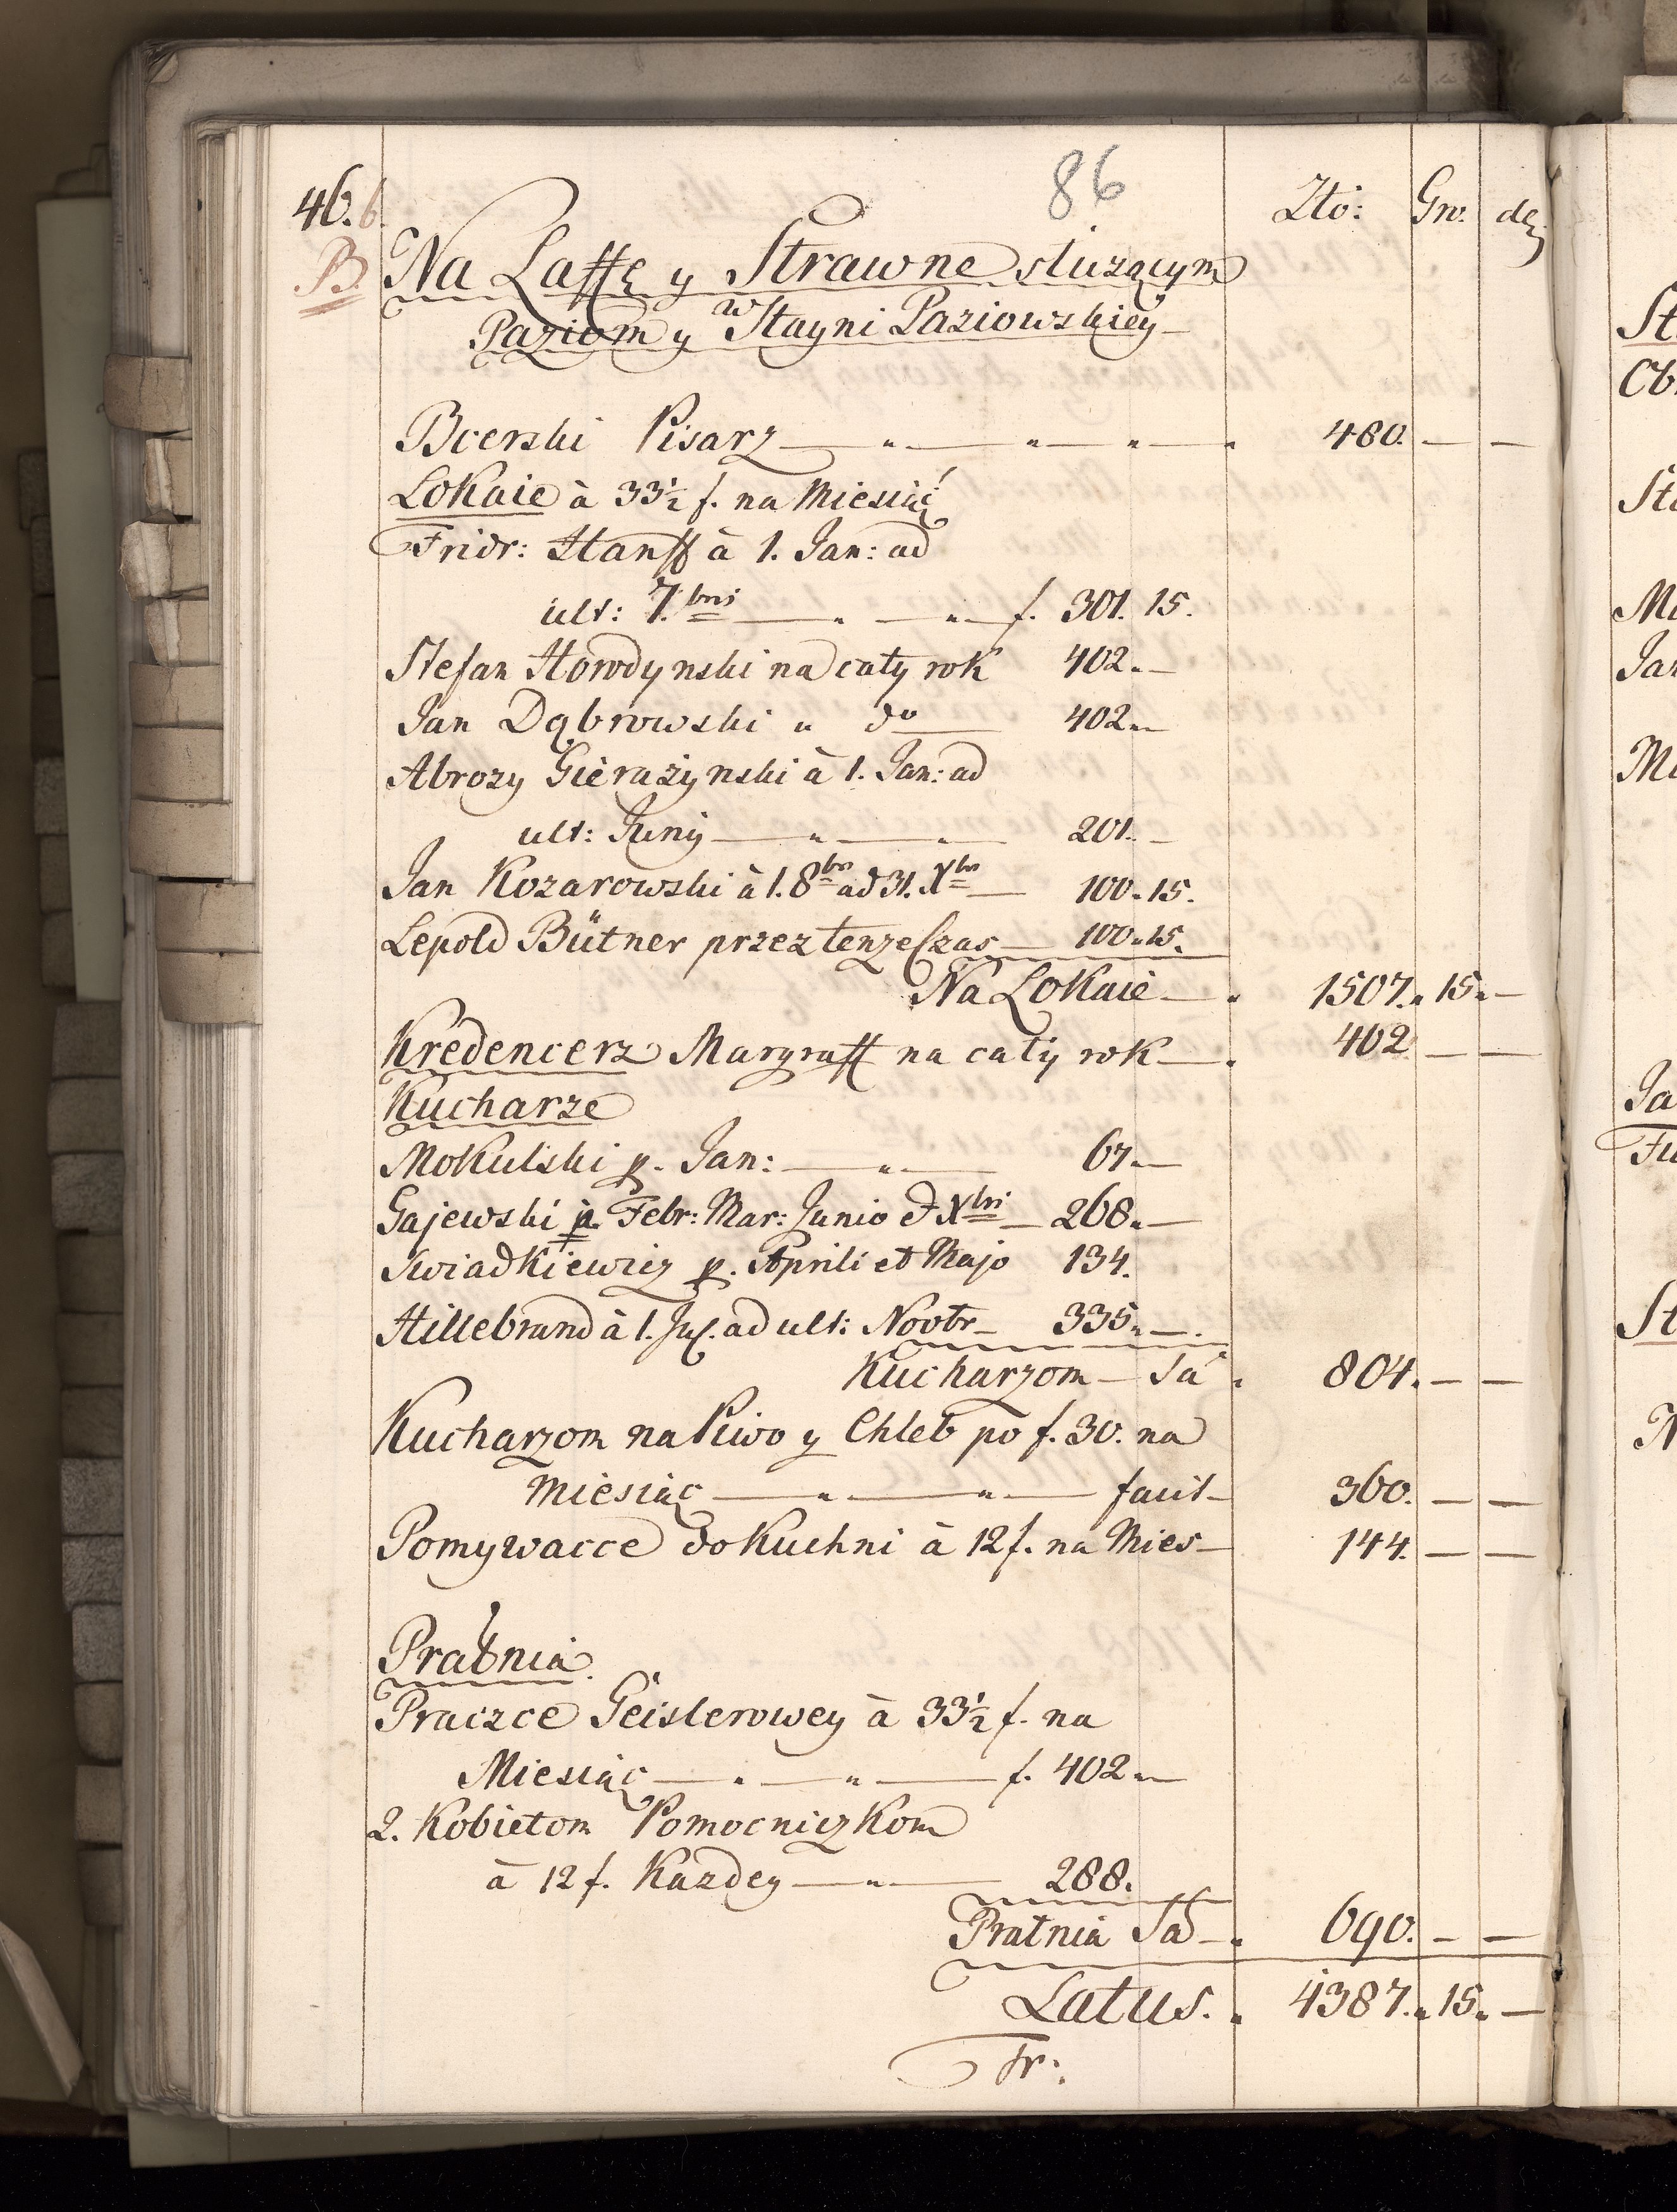 86
46. b
Złó: Gr: de
B. Na Laffę y Strawne służącym
Paziom y w Stayni Paziowskiey
Bcerski Pisarz 480. — —
Lokaie à 33½ f. na Miesiąc
Fridr: Hanff à 1. Jan: ad
ult: 7.bris f. 301. 15.
Stefan Howdynski na cały rok 402. —
Jan Dąbrowski " do 402. —
Abrozy Gierażynski à 1. Jan: ad
ult: Junij 201. —
Jan Kozarowski à 1. 8br ad 31. Xbr 100. 15.
Lepold Bütner przez tenże Czas 100. 15.
Na Lokaie 1507. 15. —
Kredencerz Margraff na cały rok 402 — —
Kucharze
Mokulski p. Jan: 67. —
Gajewski p. Febr: Mar: Junio et Xbri 268. —
Swiadkiewicz p. Aprili et Majo 134.
Hillebrand à 1. Jul. ad ult: Novbr 335. —
Kucharzom Sa 804. — —
Kucharzom na Piwo y Chleb po f. 30. na
Miesiąc facit 360. — —
Pomywacce do Kuchni à 12 f. na Mies 144. — —
Pratnia
Praczce Geislerowey à 33½ f. na
Miesiąc f. 402. —
2. Kobietom Pomocniczkom
à 12 f. Kazdey 288.
Pratnia Sa 690. — —
Latus. 4387. 15. —
Fr:
St
Ob
St
Mi
Jan
Mi
Ja
Fu
St
N